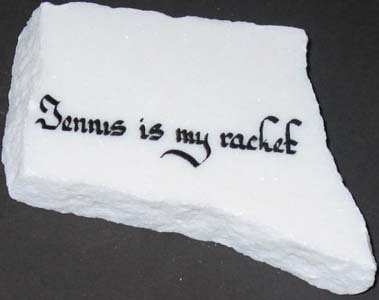 Tennis is my racket